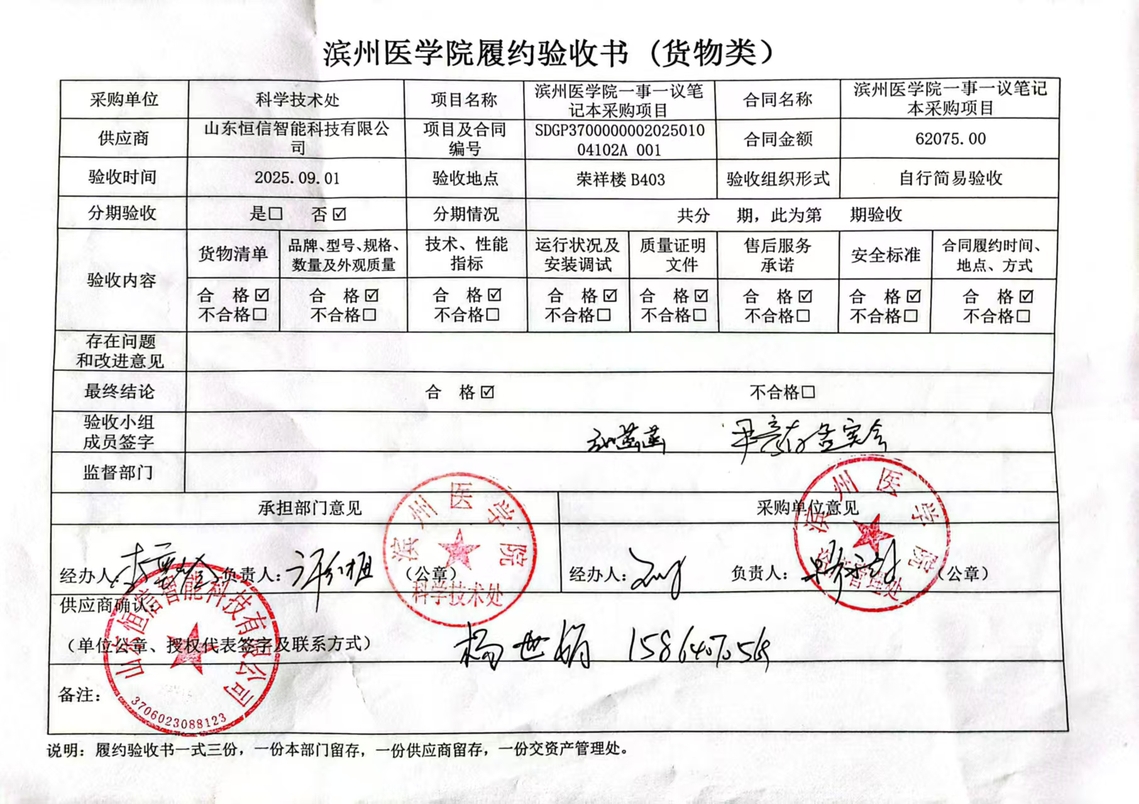 滨州医学院履约验收书（货物类）
采购单位 科学技术处 项目名称 滨州医学院一事一议笔记本采购项目 合同名称 滨州医学院一事一议笔记本采购项目
供应商 山东恒信智能科技有限公司 项目及合同编号 SDGP370000000202501004102A 001 合同金额 62075.00
验收时间 2025.09.01 验收地点 荣祥楼B403 验收组织形式 自行简易验收
分期验收 是□ 否☑ 分期情况 共分 期，此为第 期验收
验收内容 货物清单 品牌、型号、规格、数量及外观质量 技术、性能指标 运行状况及安装调试 质量证明文件 售后服务承诺 安全标准 合同履约时间、地点、方式
合 格☑ 合 格☑ 合 格☑ 合 格☑ 合 格☑ 合 格☑ 合 格☑ 合 格☑
不合格□ 不合格□ 不合格□ 不合格□ 不合格□ 不合格□ 不合格□ 不合格□
存在问题和改进意见
最终结论 合 格☑ 不合格□
验收小组成员签字
监督部门
承担部门意见 采购单位意见
经办人: 负责人: （公章） 经办人: 负责人: （公章）
滨州医学院
科学技术处
滨州医学院
供应商确认:
（单位公章、授权代表签字及联系方式） 杨世娟
山东恒信智能科技有限公司
3706023088123
备注:
说明: 履约验收书一式三份，一份本部门留存，一份供应商留存，一份交资产管理处。